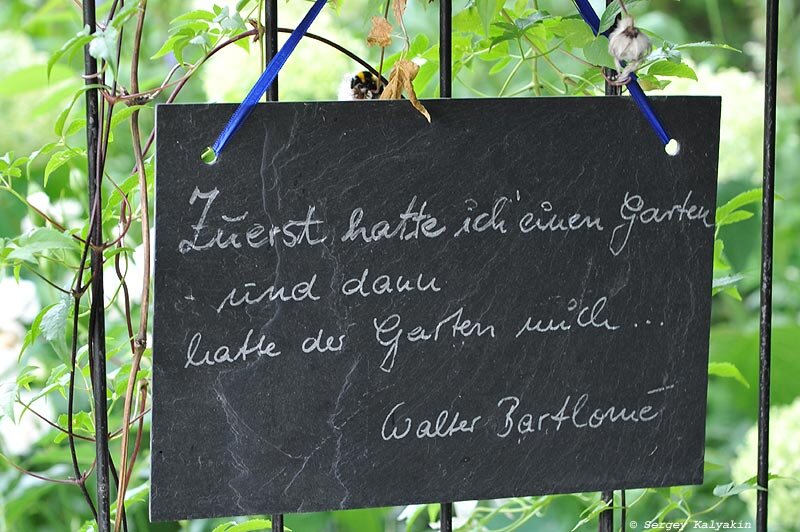 Zuerst hatte ich einen Garten
- und dann
hatte der Garten mich...
Walter Bartlomé
© Sergey Kalyakin